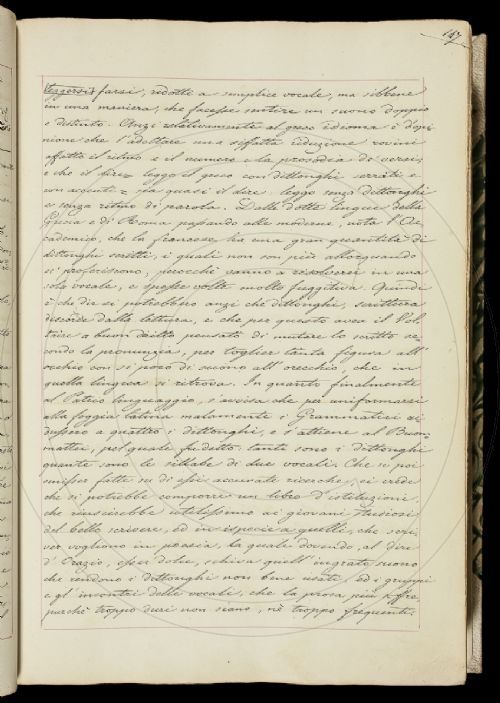 147
leggersi farsi, ridotti a semplice vocale, ma sibbene
in una maniera, che facesse sentire un suono doppio
e distinto. Anzi relativamente al greco idioma è d'opi
nione che l'adottare una siffatta riduzione rovini
affatto il ritmo e il numero e la prosodia de' versi,
e che il dire = leggo il greco con dittonghi serrati e
con accenti = sia quasi il dire: leggo senza dittonghi
e senza ritmo di parola. Dalle dotte lingue della
Grecia e di Roma passando alle moderne, nota l'Ac
cademico, che la francese ha una gran quantità di
dittonghi scritti, i quali non son più allorquando
si proferiscono, perocchè vanno a risolversi in una
sola vocale, e spesse volte molto fuggitiva. Quindi
è che dir si potrebbero anzi che dittonghi, scrittura
discorde dalla lettura, e che per questo avea il Vol
taire a buon diritto pensato di mutare lo scritto se
condo la pronunzia, per togliere tanta figura all'
occhio con sì poco di suono all'orecchio che in
quella lingua si ritrova. In quanto finalmente
al Patrio linguaggio, s'avvisa che per uniformarsi
alla foggia latina malamente i Grammatici ri
dussero a quattro i dittonghi, e s'attiene al Buom=
mattei, pel quale fu detto: tanti sono i dittonghi
quante sono le sillabe di due vocali. Che se poi
venisser fatte su di essi accurate ricerche, ei crede
che si potrebbe comporre un libro d'istituzione,
che riuscirebbe utilissimo ai giovani studiosi
del bello scrivere, ed in ispecie a quelli, che scri
ver vogliono in poesia, la quale dovendo, al dire
d'Orazio, esser dolce, schiva quell'ingrato suono
che rendono i dittonghi non bene usati, ed i gruppi
e gl'incontri delle vocali, che la prosa più soffre
purchè troppo duri non siano, nè troppo frequenti.